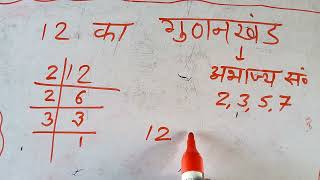 12 का गुणनखंड
↓
अभाज्य सं०
2, 3, 5, 7
2 | 12
2 | 6
3 | 3
1
12